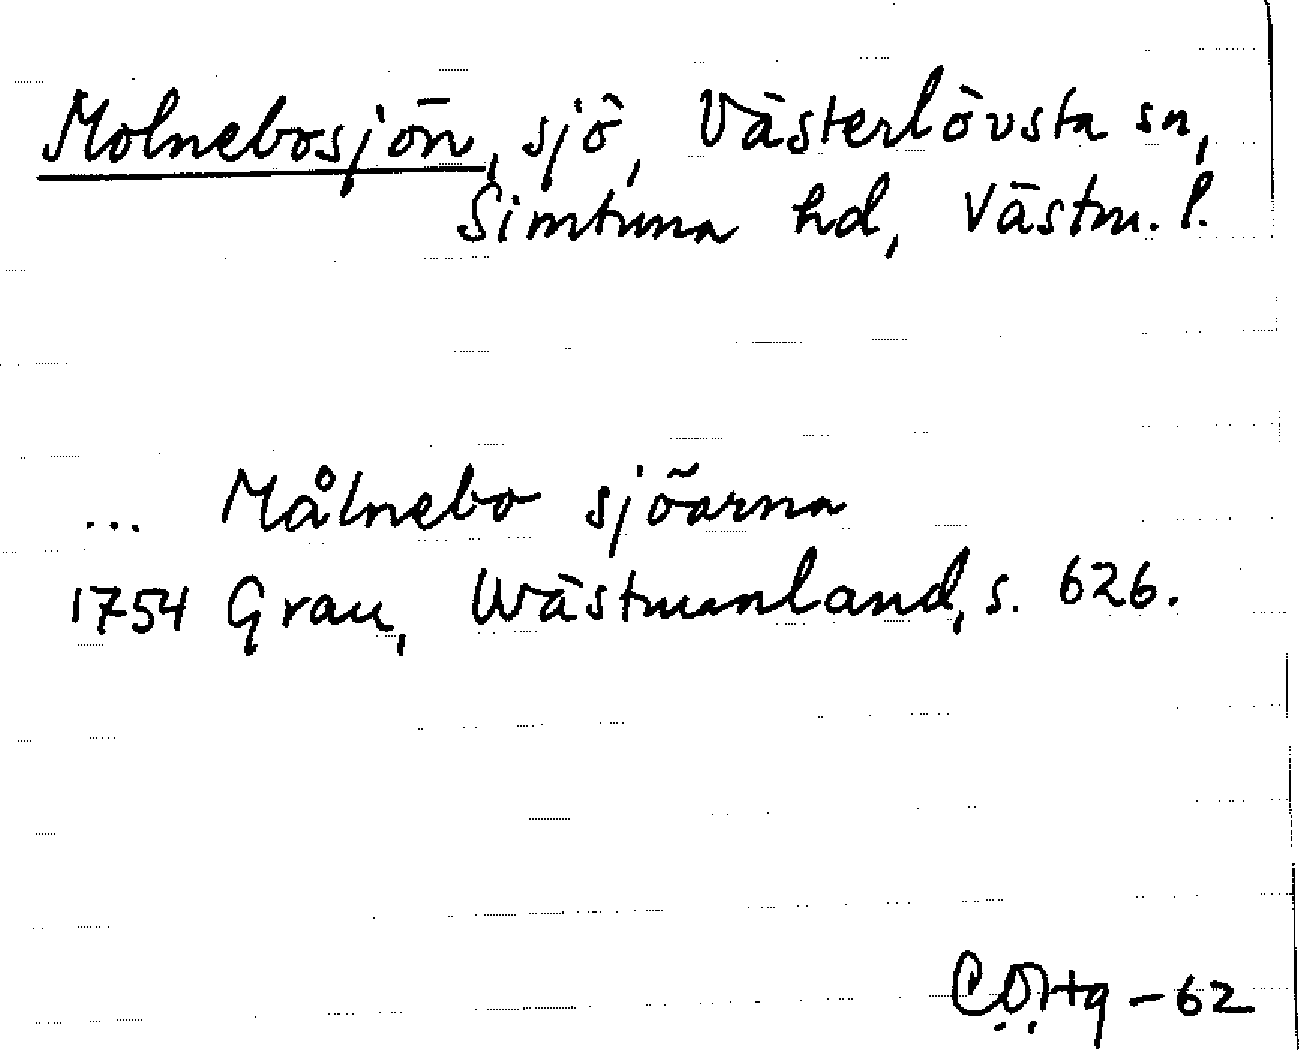 Molnebosjön, sjö, Västerlövsta sn,
Simtuna hd, Västm. l.
... Målnebo sjöarna
1754 Grau, Wästmanland, s. 626.
-62